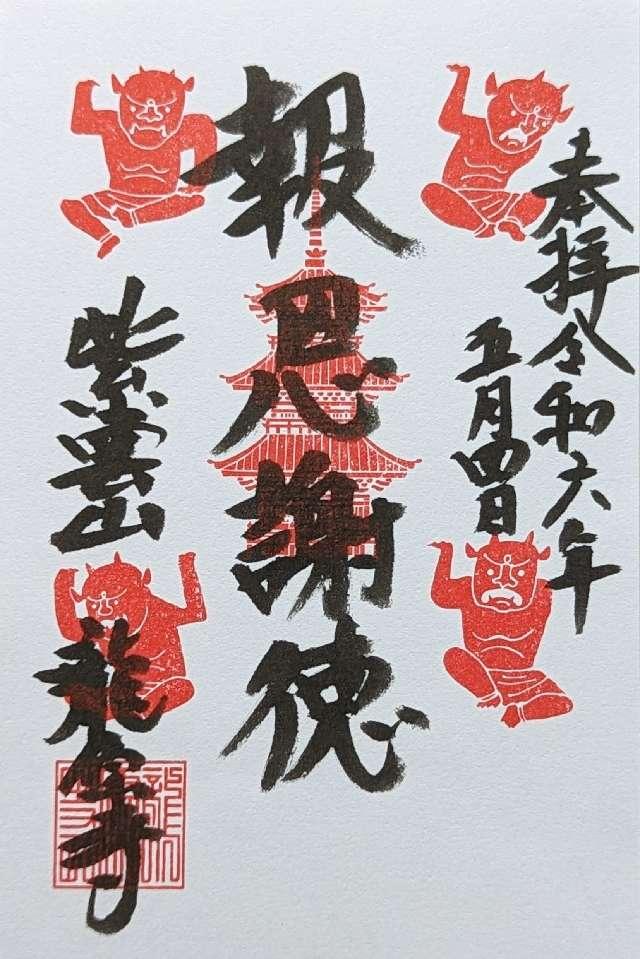 奉拝 令和六年
五月四日
報恩謝徳
紫雲山
龍 寺